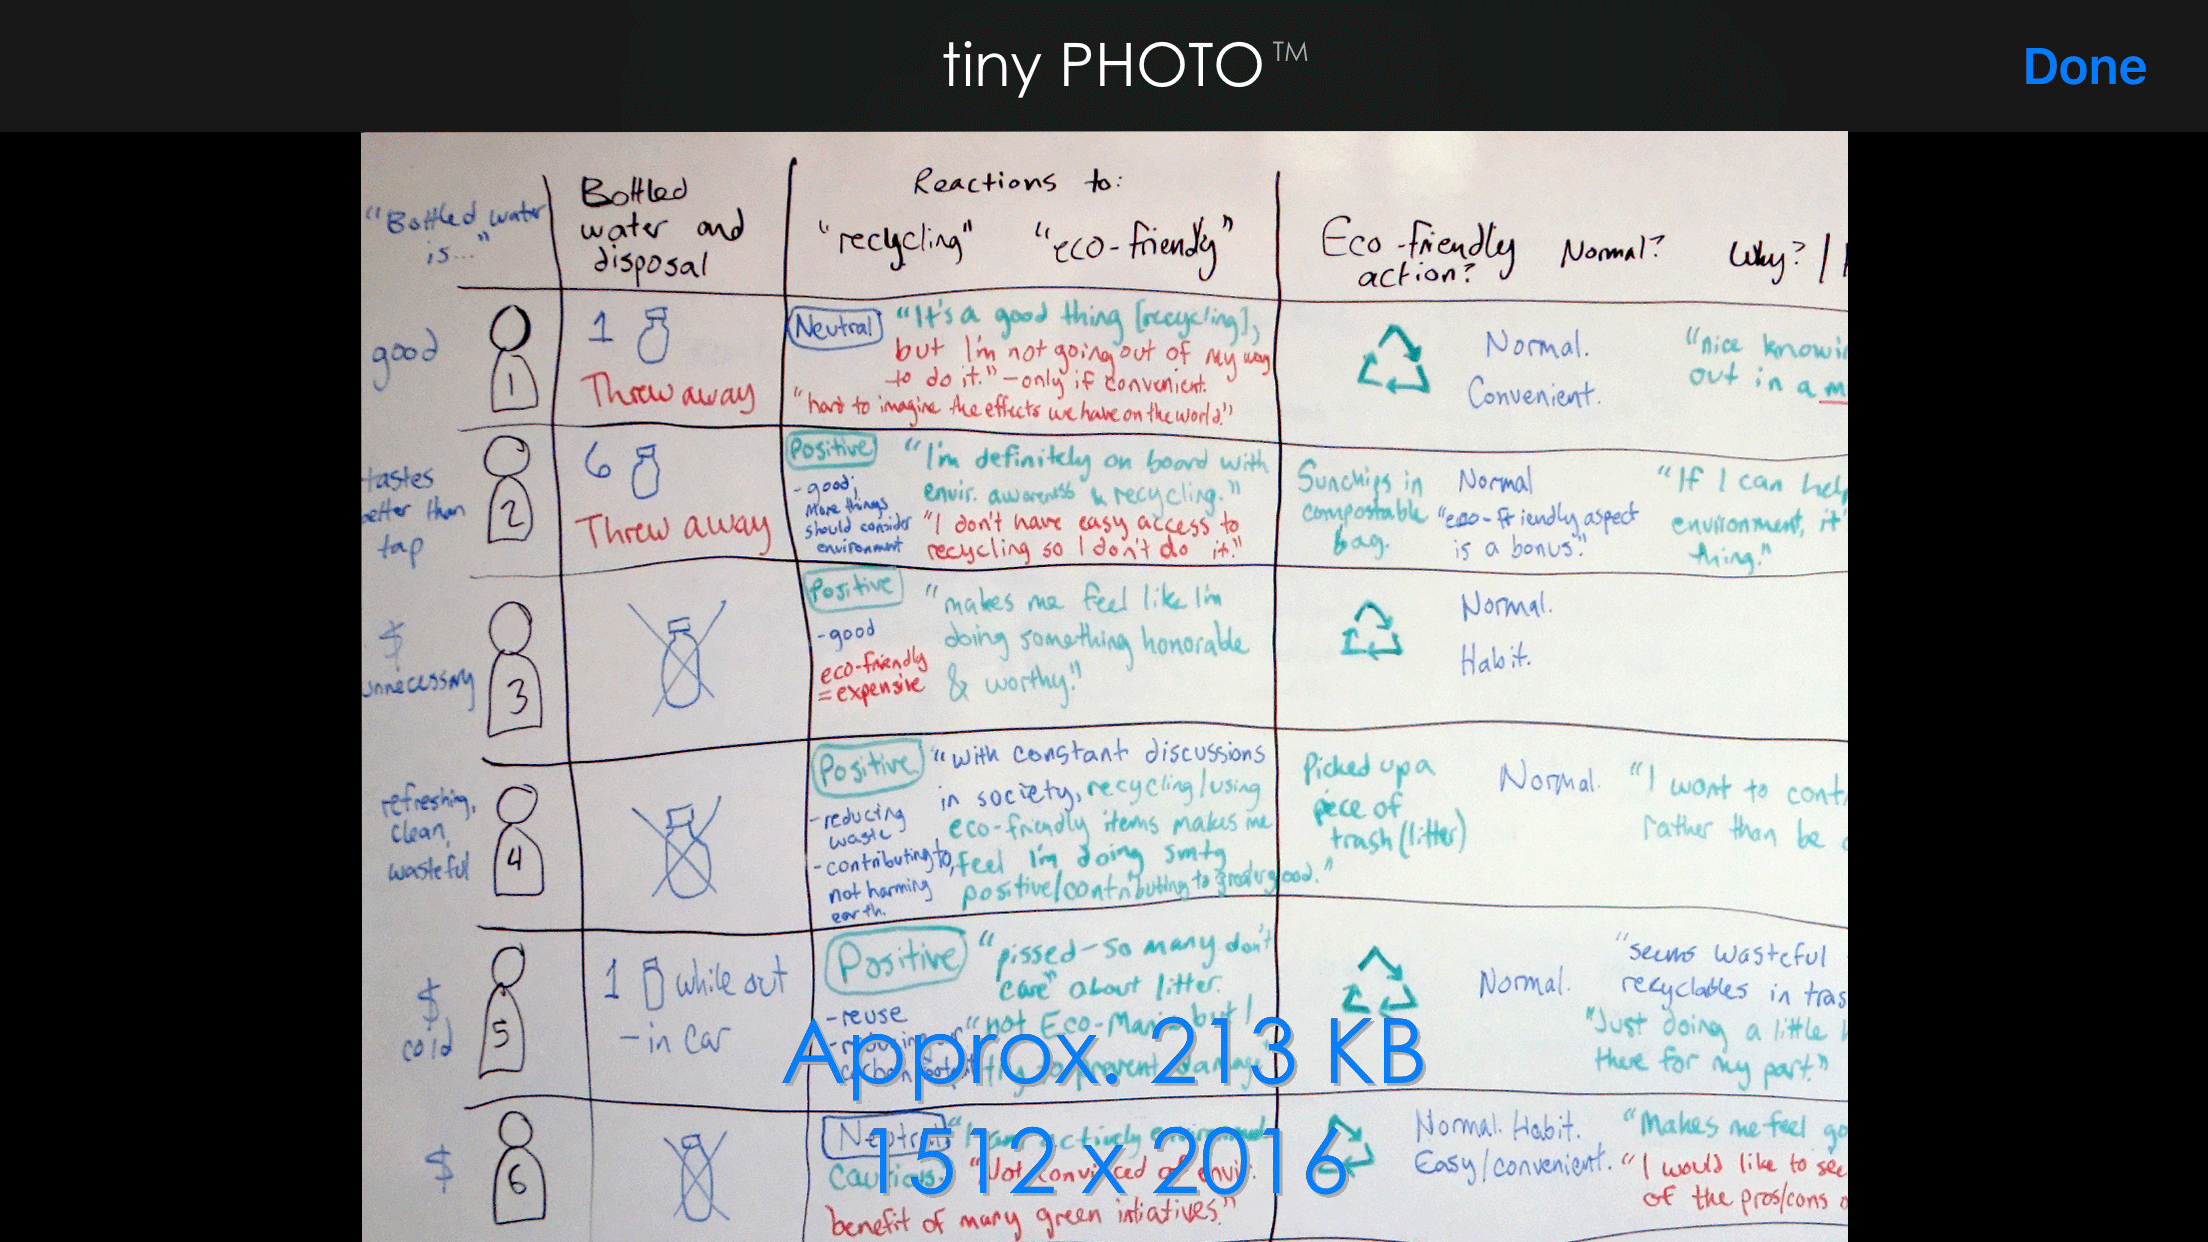 tiny PHOTO™
Done
Reactions to:
"Bottled water
is..."
Bottled
water and
disposal
"recycling" "eco-friendly"
Eco-friendly
action?
Normal?
Why? |
good
1
1
Threw away
Neutral
"It's a good thing [recycling],
but I'm not going out of my way
to do it." - only if convenient.
"hard to imagine the effects we have on the world."
Normal.
Convenient.
"nice
out in a
tastes
better than
tap
2
6
Threw away
Positive
- good;
more things
should consider
environment
"I'm definitely on board with
envir. awareness & recycling."
"I don't have easy access to
recycling so I don't do it."
Sunchips in
compostable
bag.
Normal
"eco-friendly aspect
is a bonus."
"If I can help
environment, it'
thing."
$
unnecessary
3
Positive
- good
eco-friendly
= expensive
"makes me feel like I'm
doing something honorable
& worthy."
Normal.
Habit.
refreshing,
clean,
wasteful
4
Positive
- reducing
waste
- contributing to,
not harming
earth.
"with constant discussions
in society, recycling/using
eco-friendly items makes me
feel I'm doing smtg
positive/contributing to greater good."
Picked up a
piece of
trash (litter)
Normal.
"I want to
rather than be
$
cold
5
1 while out
- in car
Positive
- reuse
"pissed - so many don't
care" about litter.
"not Eco-Man but I
try to prevent damage
Normal.
"seems wasteful
recyclables in
"Just doing a little
there for my part."
Approx. 213 KB
1512 x 2016
$
6
Neutral
Cautious.
"Not convinced of envir.
benefit of many green intiatives."
Normal. Habit.
Easy/convenient.
"Makes me feel
"I would like to see
of the pros/cons